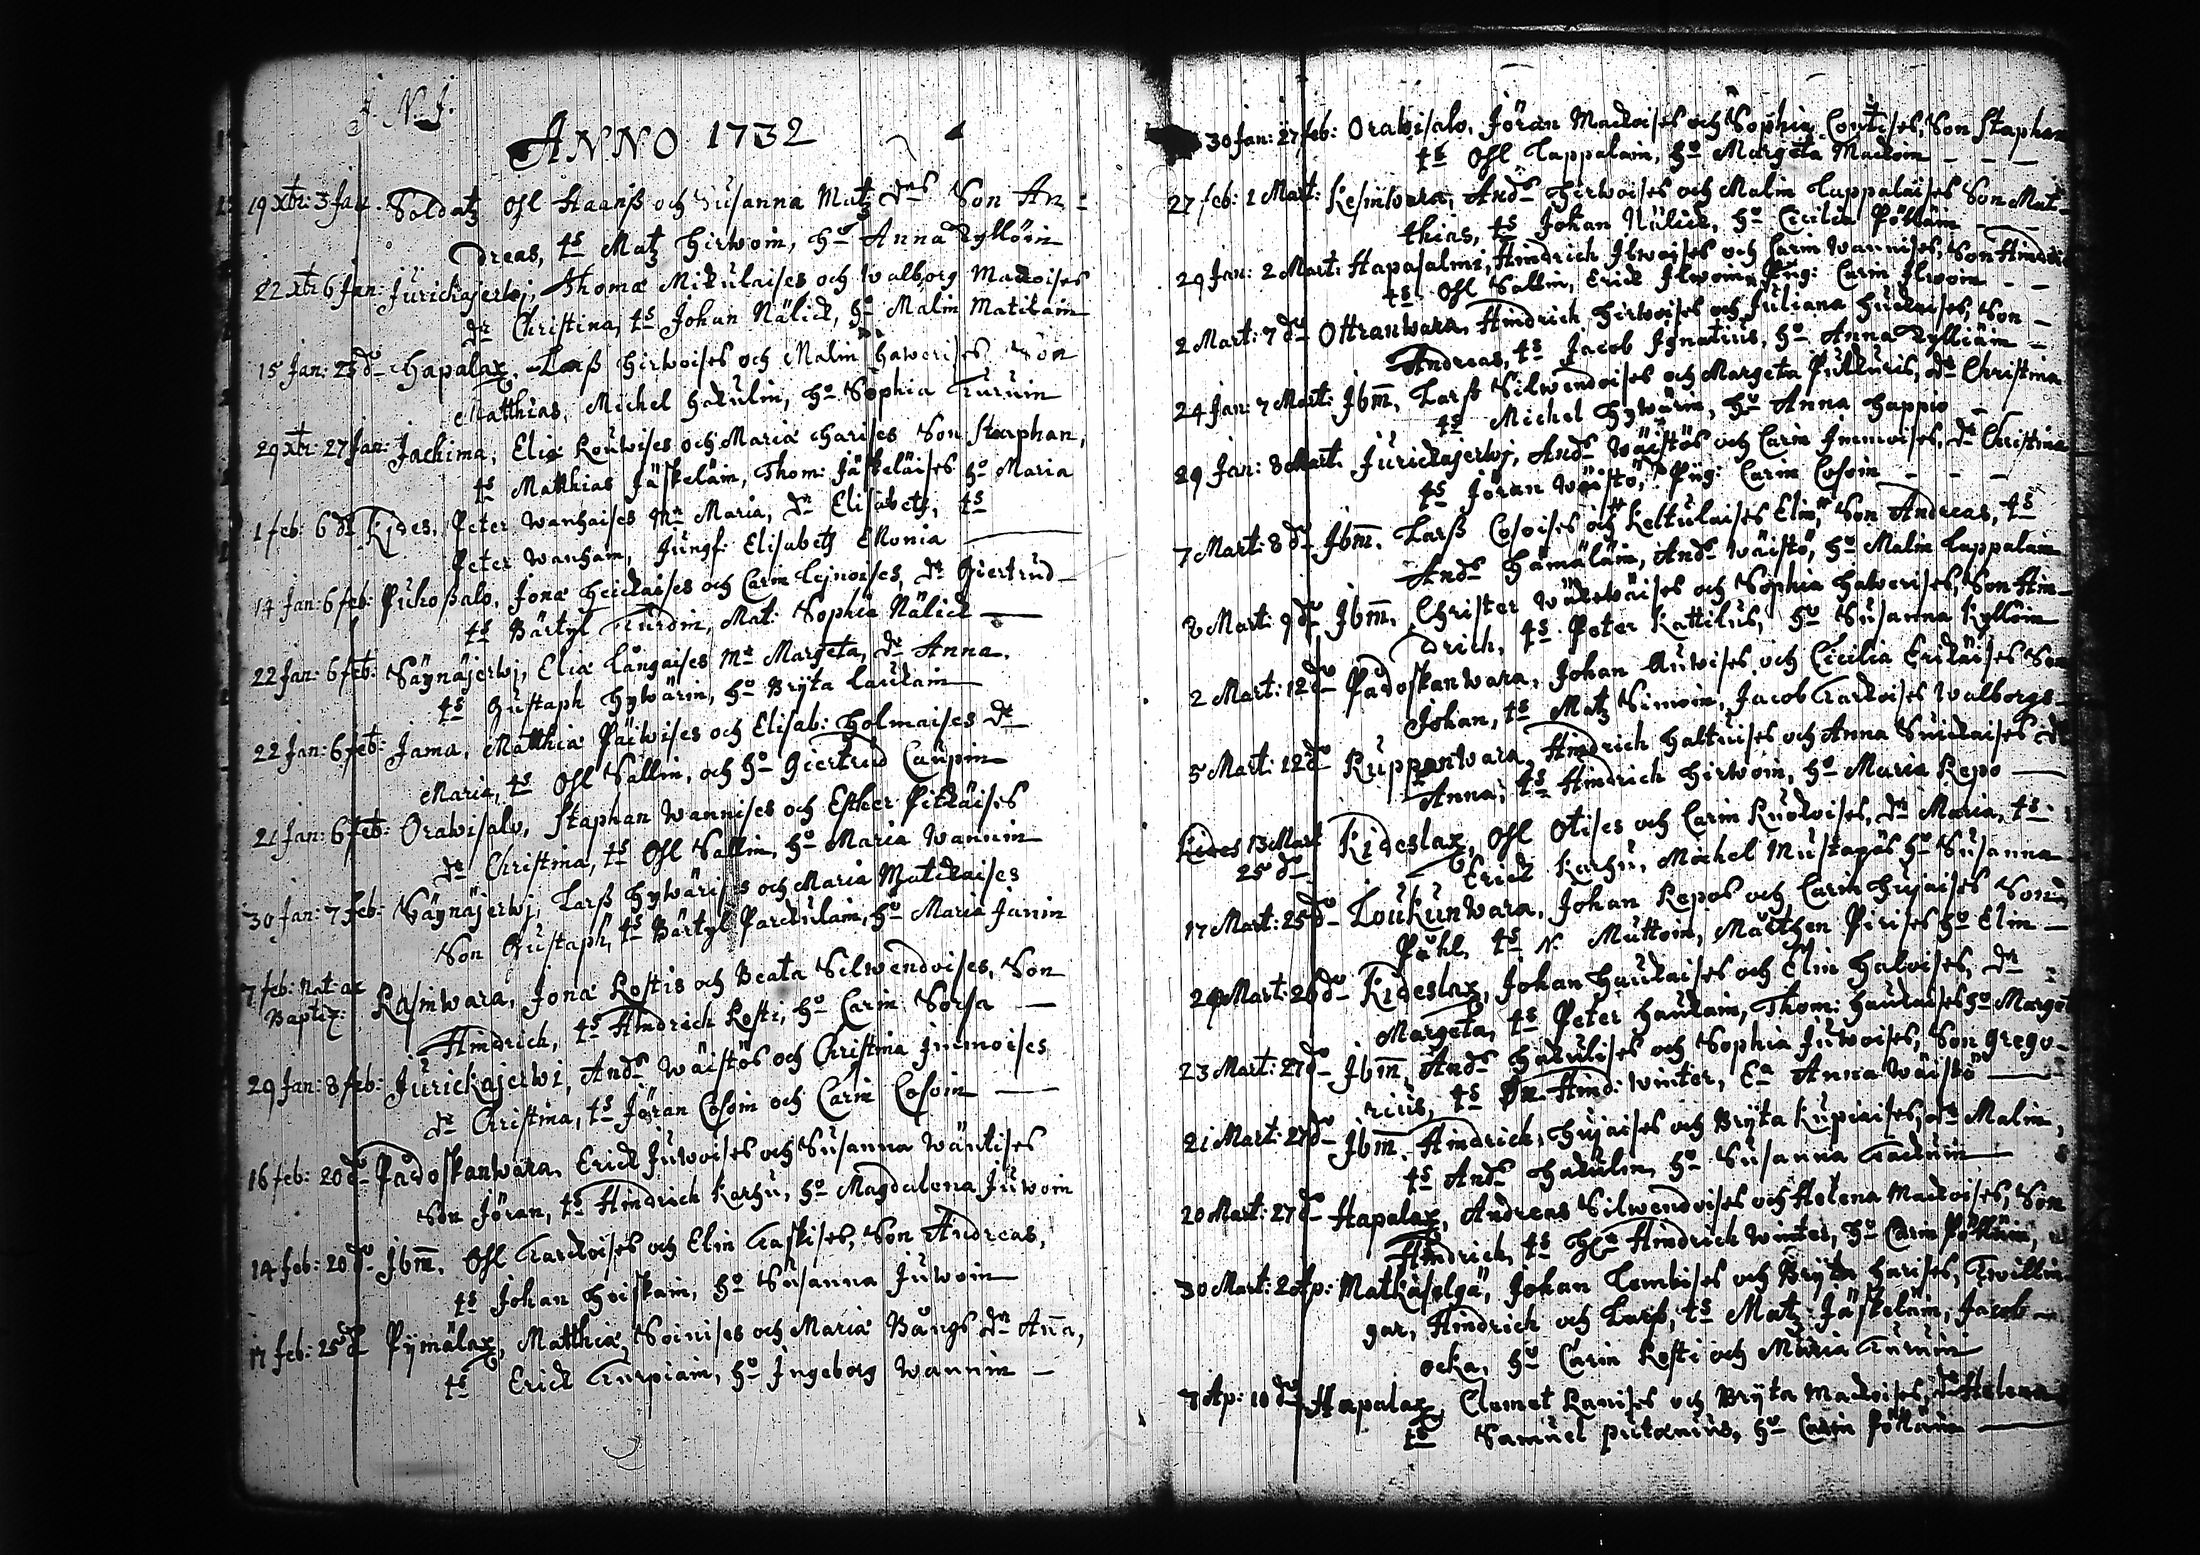 J. N. J.
ANNO 1732
19 xbr: 3 Jan: Soldatz Ohl Haanß och Susanna Matz dr Son An=
dreas, ts Matz Hirwoin, ho Anna Kyllöin
22 xbr 6 Jan: Jurickajerwj, Thomæ Mikulaises och Walborg Mackoises
dr Christina, ts Johan Nälick, ho Malin Matikain
15 Jan: 25 do Hapalax, Larß Hirwoises och Malin Haweri[ses] Son
Matthias, Michel Hakulin, ho Sophia Turuin
29 xbr: 27 Jan: Jachima, Eliæ Rouwises och Maria Harises Son Staphan,
ts Matthias Jäskeläin, Thom: Jäskeläises ho Maria
1 feb: 6 do Kides, Peter Wanhaises Mr Maria, dr Elisabetz, ts
Peter Wanhain, Jungf: Elisabetz Ekonia
14 Jan: 6 feb: Puhoßalo, Jonæ Heickaises och Carin Lejnoises, dr Giertrud
ts Bärtyl Turdin, Mat: Sophia Nälick
22 Jan: 6 feb: Säynäjerwj, Eliæ Långaises Mr Margeta, dr Anna,
ts Gustaph Hywärin, ho Brÿta Laukain
22 Jan: 6 feb: Jama, Matthiæ Päiwises och Elisab: Holmaises dr
Maria, ts Ohl Sallin, och ho Giertrud Caupin
21 Jan: 6 feb: Orawisalo, Staphan Wannises och Esther Pitkäises
dr Christina, ts Ohl Sallin, ho Maria Wannin
30 Jan: 7 feb: Säynäjerwj, Larß Hywärises och Maria Matickaises
Son Gustaph, ts Bärtyl Parckulain, ho Maria Janin
7 feb: nat: ac Baptiz: Rasinwara, Jonæ Rostis och Beata Silwendoises, Son
Hindrich, ts Hindrich Rosti, ho Carin Sorsa
29 Jan: 8 feb: Jurickajerwi, Ands Wäistös och Christina Immoises
dr Christina, ts Jöran Cosoin och Carin Cosoin
16 feb: 20 do Padoskanwara, Erick Juwoises och Susanna Wäntises
Son Jöran, ts Hindrich Karhu, ho Magdalena Juwoin
14 feb: 20 do Ibm, Ohl Karckoises och Elin Kaskises, Son Andreas,
ts Johan Hoiskain, ho Susanna Juwoin
17 feb: 25 do Pÿmälax, Matthiæ Soinises och Maria Bångs dr Anna,
ts Erick Turpiain, ho Ingeborg Wannin
30 Jan: 27 feb: Orawisalo, Jöran Mackoises och Sophia Contises, Son Staphan
ts Ohl Lappalain, ho Margeta Mackoin
27 feb: 1 Mart: Kesinwara, Ands Hirwoises och Malin Lappalaises Son Mat-
thias, ts Johan Nälick, ho Cicilia Pöttäin
29 Jan: 2 Mart: Hapasalmi, Hindrich Ilwoises och Carin Wannises, Son Hindrich
ts Ohl Sallin, Erick Ilwoin, Pig: Carin Ilwoin
2 Mart: 7 do Ottranwara, Hindrich Hirwoises och Juliana Huckaises, Son
Andreas, ts Jacob Ignatius, ho Anna Kylliäin
24 Jan: 7 Mart: Ibm, Larß Silwendoises och Margeta Pulkuris, dr Christina
ts Michel Hywärin, ho Anna Happio
29 Jan: 8 Mart: Jurickajerwj, Ands Wäistös och Carin Immoises, dr Christina
ts Jöran Wäistö, Pig: Carin Cosoin
7 Mart: 8 do Ibm, Larß Cosoises och Keltulaises Elin, Son Andreas, ts
Ands Hämäläin, Ands Wäistö, ho Malin Lappalain
2 Mart: 9 do Ibm, Christer Wäkewäises och Sophia Hawerises, Son Hin-
drich, ts Peter Kattilus, ho Susanna Kyllöin
2 Mart: 12 do Padoskanwara, Johan Auwises och Cicilia Erickäises Son
Johan, ts Matz Simoin, Jacob Karckoises Walborgs
5 Mart: 12 do Ruppanwara, Hindrich Haltuises och Anna Suickaises dr
Anna, ts Hindrich Hirwoin, ho Maria Repo
Kides 13 Mart 25 do Kideslax, Ohl Otises och Carin Ruokoises, dr Maria, ts
Erick Karhu, Michel Mustapäs ho Susanna
17 Mart: 25 do Loukunwara, Johan Repos och Carin Hujaises Son
Påhl, ts N. Muttoin, Mårthen Pirises ho Elin
24 Mart: 26 do Kideslax, Johan Haukaises och Elin Haloises, dr
Margeta, ts Peter Haukain, Thom: Haukaises ho Marget
23 Mart: 27 do Ibm, Ands Hakulises och Sophia Juwoises, Son Grego-
rius, ts Hind: Winter, Ea Anna Wäistö
21 Mart: 27 do Ibm, Hindrich Hujaises och Brÿta Kupiaises, dr Malin,
ts Ands Hakulin, ho Susanna Kackuin
20 Mart: 27 do Hapalax, Andreas Silwendoises och Helena Mackoises, Son
Hindrich, ts Hindrich Winter, ho Carin Pöttäin,
30 Mart: 2 Ap: Matkaselgä, Johan Lembises och Brÿta Harises, Twillin-
gar, Hindrich och Larß, ts Matz Jäskeläin, Jacob
ocka, ho Carin Rosti och Maria Turuin
7 Ap: 10 do Hapalax, Clemet Ranises och Brÿta Mackoises, dr Helena
ts Samuel Putænius, ho Carin Pöttäin